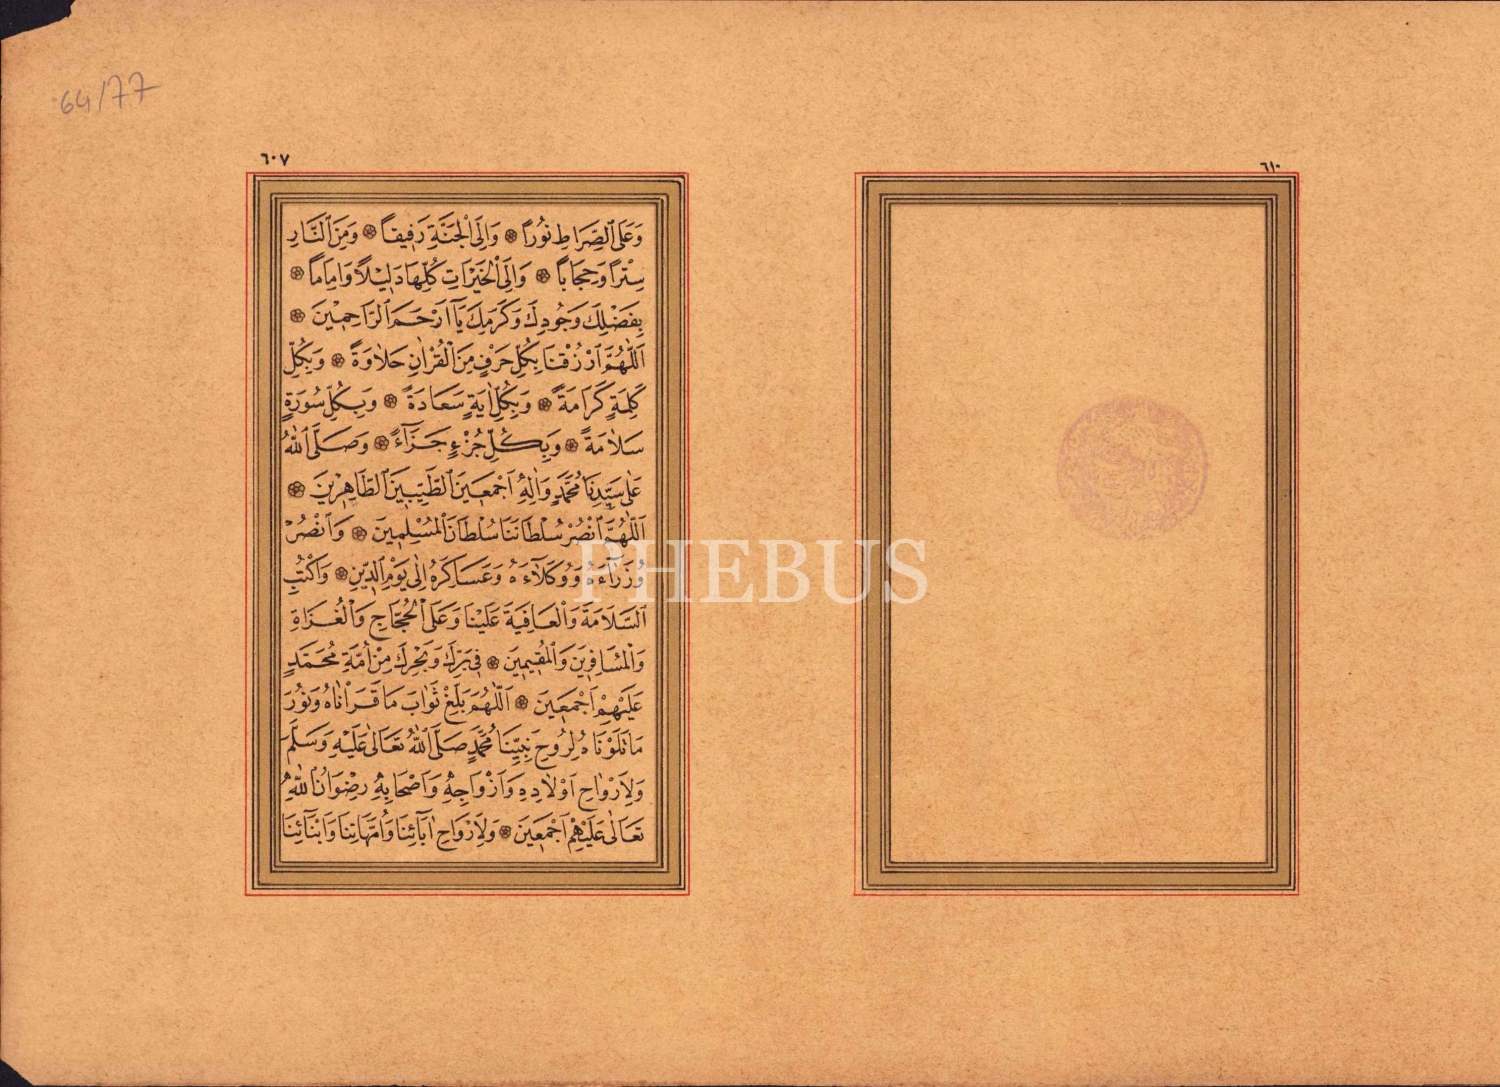 64/77
٦٠٧
وَعَلَى الصِّرَاطِ نُورًا ۞ وَإِلَى الْجَنَّةِ رَفِيقًا ۞ وَمِنَ النَّارِ
سِتْرًا وَحِجَابًا ۞ وَإِلَى الْخَيْرَاتِ كُلِّهَا دَلِيلًا وَإِمَامًا ۞
بِفَضْلِكَ وَجُودِكَ وَكَرَمِكَ يَا أَرْحَمَ الرَّاحِمِينَ ۞
اَللّٰهُمَّ ارْزُقْنَا بِكُلِّ حَرْفٍ مِنَ الْقُرْاٰنِ حَلَاوَةً ۞ وَبِكُلِّ
كَلِمَةٍ كَرَامَةً ۞ وَبِكُلِّ اٰيَةٍ سَعَادَةً ۞ وَبِكُلِّ سُورَةٍ
سَلَامَةً ۞ وَبِكُلِّ جُزْءٍ جَزَاءً ۞ وَصَلَّى اللّٰهُ
عَلَى سَيِّدِنَا مُحَمَّدٍ وَاٰلِهِ اَجْمَعِينَ الطَّيِّبِينَ الطَّاهِرِينَ ۞
اَللّٰهُمَّ انْصُرْ سُلْطَانَنَا سُلْطَانَ الْمُسْلِمِينَ ۞ وَانْصُرْ
وُزَرَاءَهُ وَوُكَلَاءَهُ وَعَسَاكِرَهُ اِلَى يَوْمِ الدِّينِ ۞ وَاكْتُبِ
السَّلَامَةَ وَالْعَافِيَةَ عَلَيْنَا وَعَلَى الْحُجَّاجِ وَالْغُزَاةِ
وَالْمُسَافِرِينَ وَالْمُقِيمِينَ ۞ فِى بَرِّكَ وَبَحْرِكَ مِنْ اُمَّةِ مُحَمَّدٍ
عَلَيْهِمْ اَجْمَعِينَ ۞ اَللّٰهُمَّ بَلِّغْ ثَوَابَ مَا قَرَأْنَاهُ وَنُورَ
مَا تَلَوْنَاهُ لِرُوحِ نَبِيِّنَا مُحَمَّدٍ صَلَّى اللّٰهُ تَعَالَى عَلَيْهِ وَسَلَّمَ
وَلِاَرْوَاحِ اَوْلَادِهِ وَاَزْوَاجِهِ وَاَصْحَابِهِ رِضْوَانُ اللّٰهِ
تَعَالَى عَلَيْهِمْ اَجْمَعِينَ ۞ وَلِاَرْوَاحِ اٰبَائِنَا وَاُمَّهَاتِنَا وَاَبْنَائِنَا
٦١٠
PHEBUS